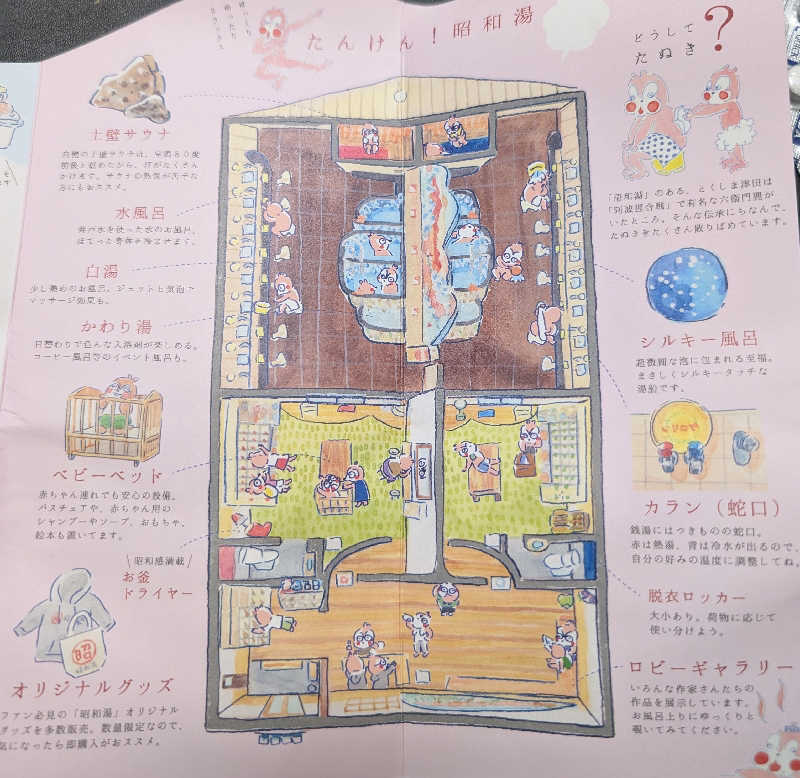 たんけん！昭和湯
どうして
たぬき？
土壁サウナ
水風呂
白湯
少し熱めのお風呂。ジェットと気泡で
マッサージ効果も。
かわり湯
日替わりで色んな入浴剤が楽しめる。
コーヒー風呂等のイベント風呂も。
ベビーベッド
赤ちゃん連れでも安心の設備。
バスチェアや、赤ちゃん用の
シャンプーやソープ、おもちゃ、
絵本も置いてます。
昭和感満載
お釜
ドライヤー
昭
昭和湯
オリジナルグッズ
ファン必見の「昭和湯」オリジナル
グッズを多数販売。数量限定なので、
気になったら即購入がおススメ。
「昭和湯」のある、とくしま津田は
「阿波狸合戦」で有名な六衛門狸が
いたところ。そんな伝承にちなんで、
たぬきをたくさん散りばめています。
シルキー風呂
超微細な泡に包まれる至福。
まさしくシルキータッチな
湯船です。
カラン（蛇口）
銭湯にはつきものの蛇口。
赤は熱湯、青は冷水が出るので、
自分の好みの温度に調整してね。
脱衣ロッカー
大小あり。荷物に応じて
使い分けよう。
ロビーギャラリー
いろんな作家さんたちの
作品を展示しています。
お風呂上りにゆっくりと
覗いてみてください。